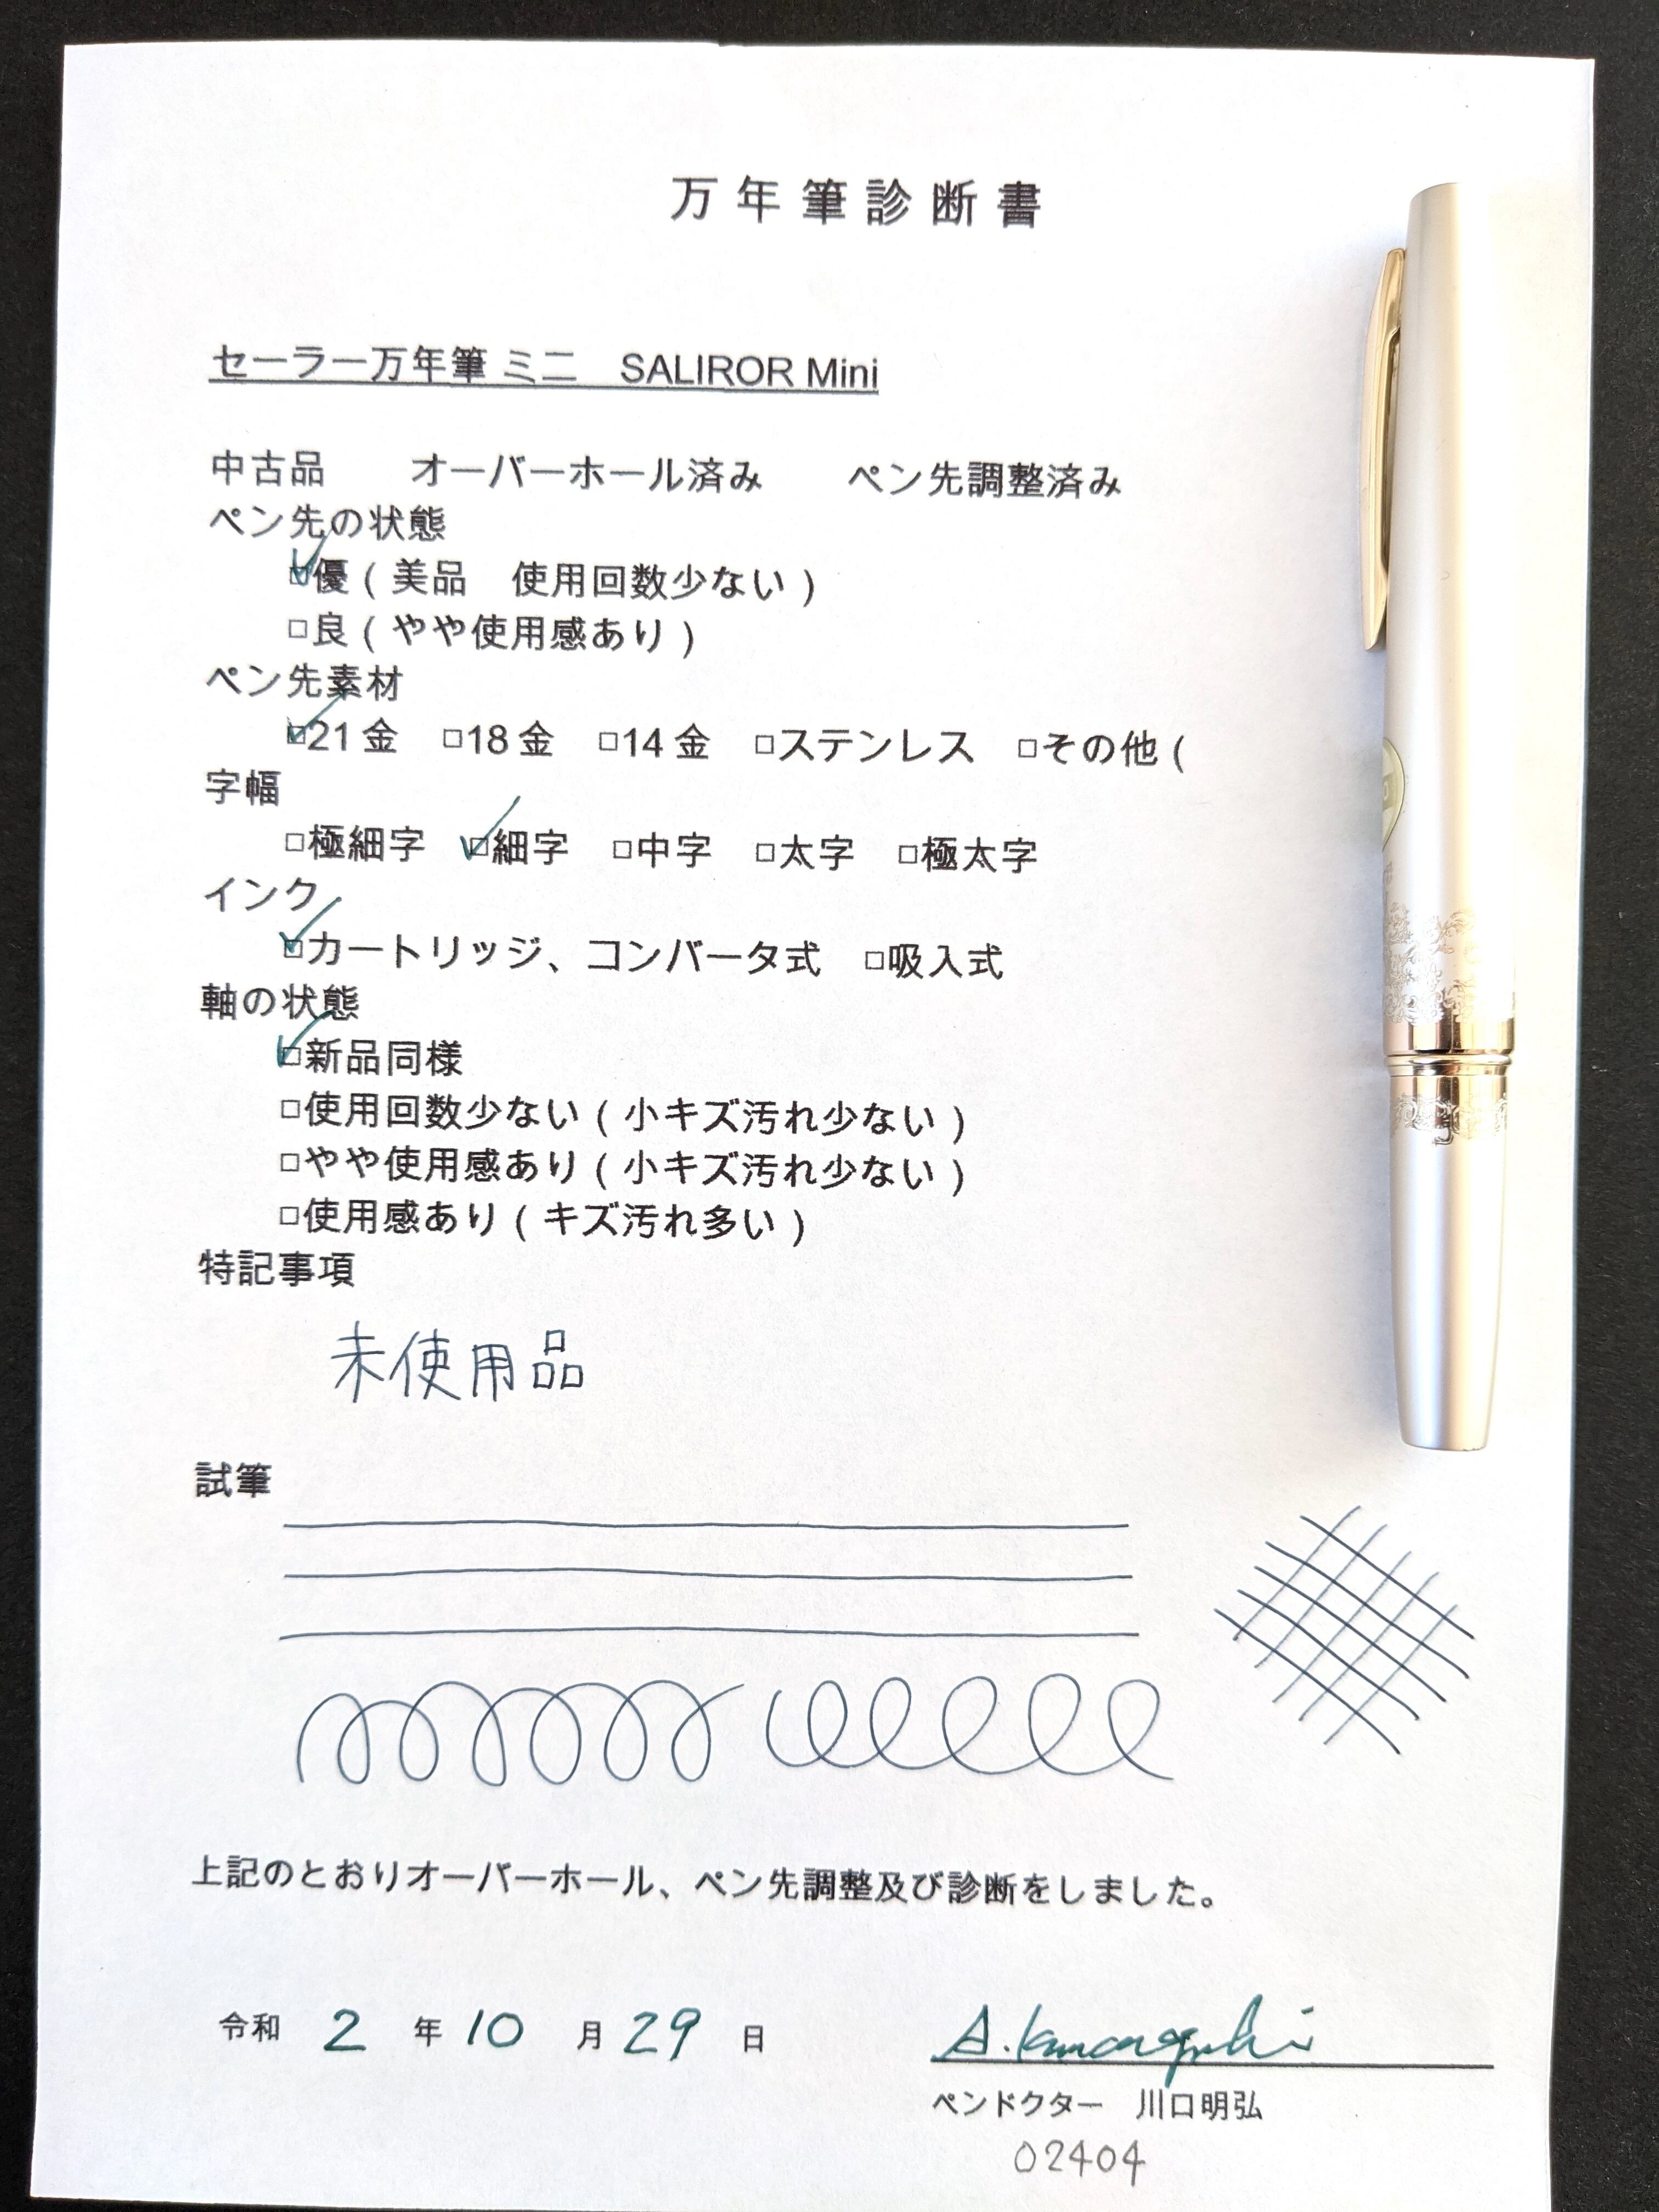 万年筆診断書
セーラー万年筆 ミニ　SALIROR Mini
中古品　オーバーホール済み　ペン先調整済み
ペン先の状態
☑優（美品　使用回数少ない）
□良（やや使用感あり）
ペン先素材
☑21金　□18金　□14金　□ステンレス　□その他（
字幅
□極細字　☑細字　□中字　□太字　□極太字
インク
☑カートリッジ、コンバータ式　□吸入式
軸の状態
☑新品同様
□使用回数少ない（小キズ汚れ少ない）
□やや使用感あり（小キズ汚れ少ない）
□使用感あり（キズ汚れ多い）
特記事項
未使用品
試筆
上記のとおりオーバーホール、ペン先調整及び診断をしました。
令和 2 年 10 月 29 日
A. Kawaguchi
ペンドクター　川口明弘
02404